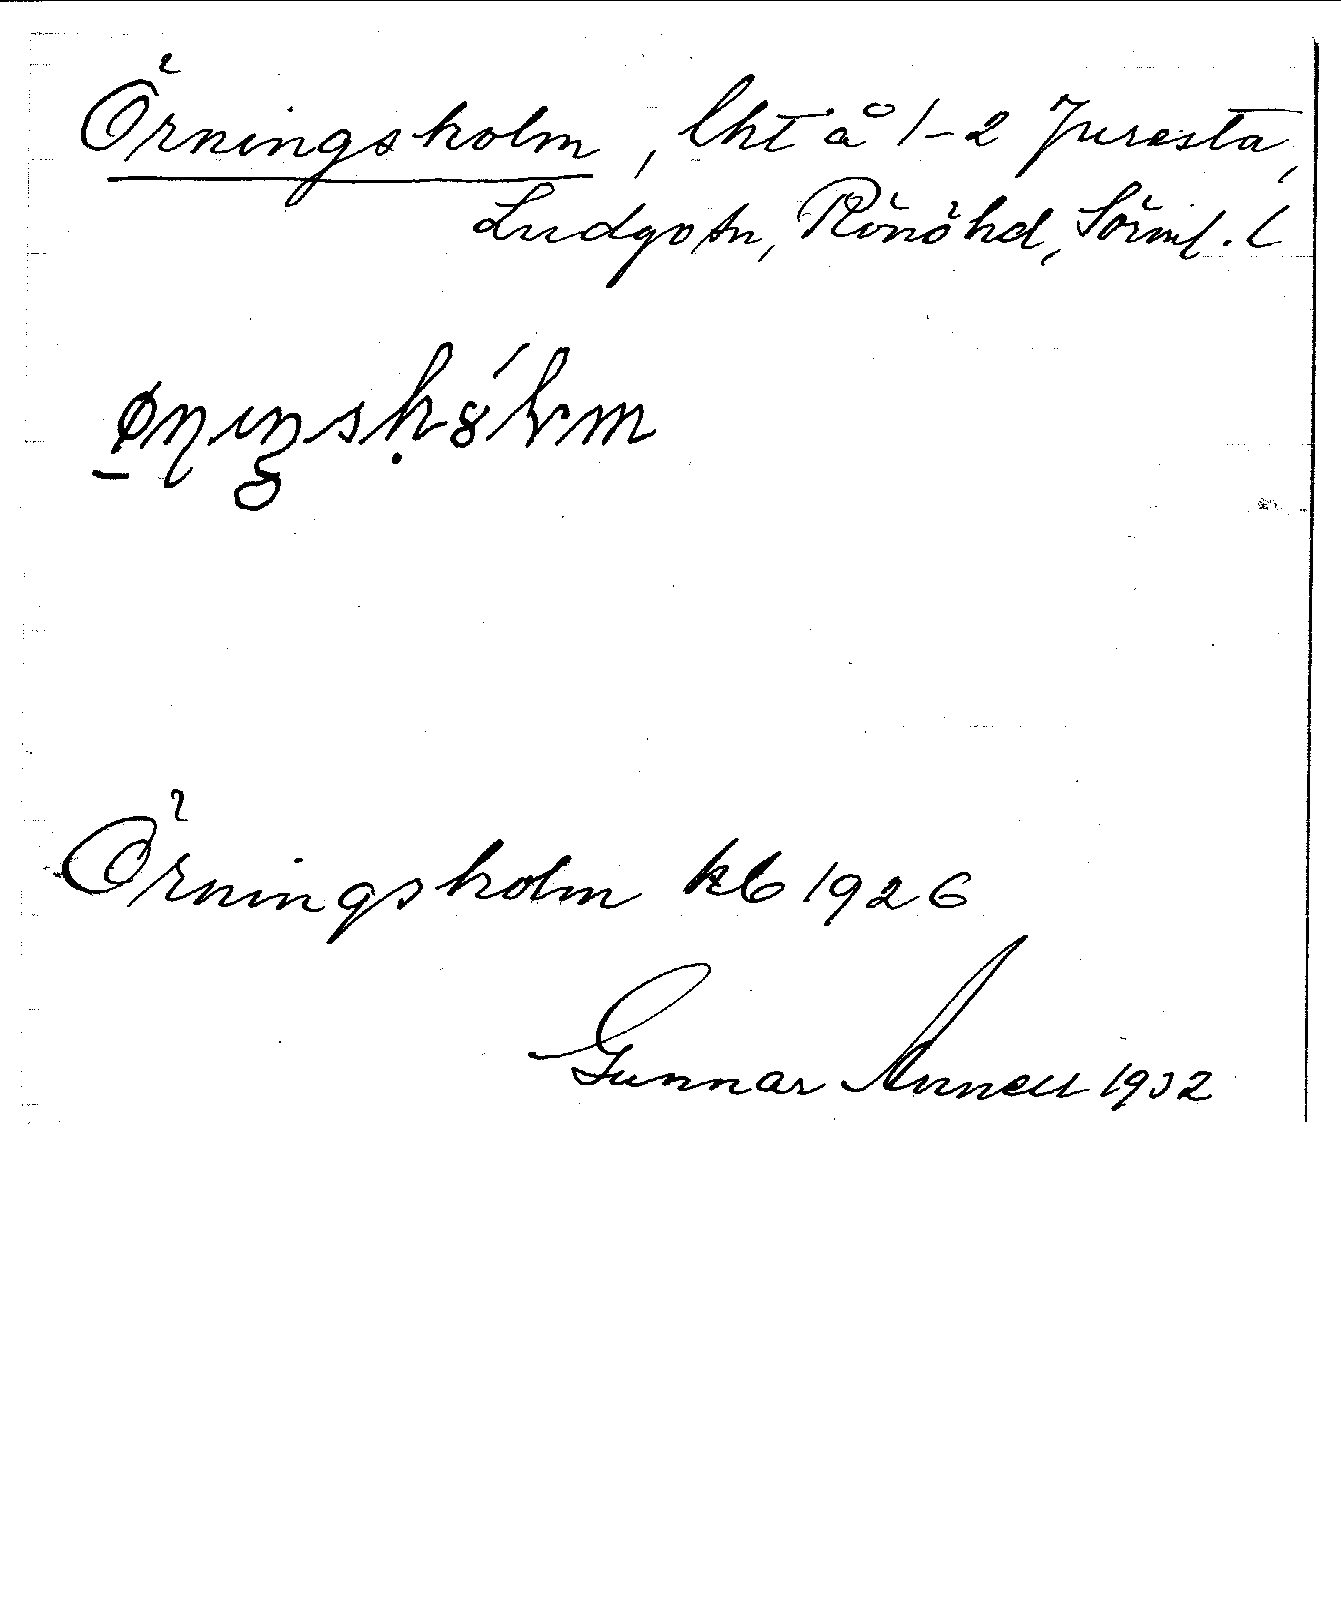 Örningsholm, lht å 1-2 Juresta,
Ludgo sn, Rönö hd, Sörml. l
Örningsholm kb 1926
Gunnar Annell 1932